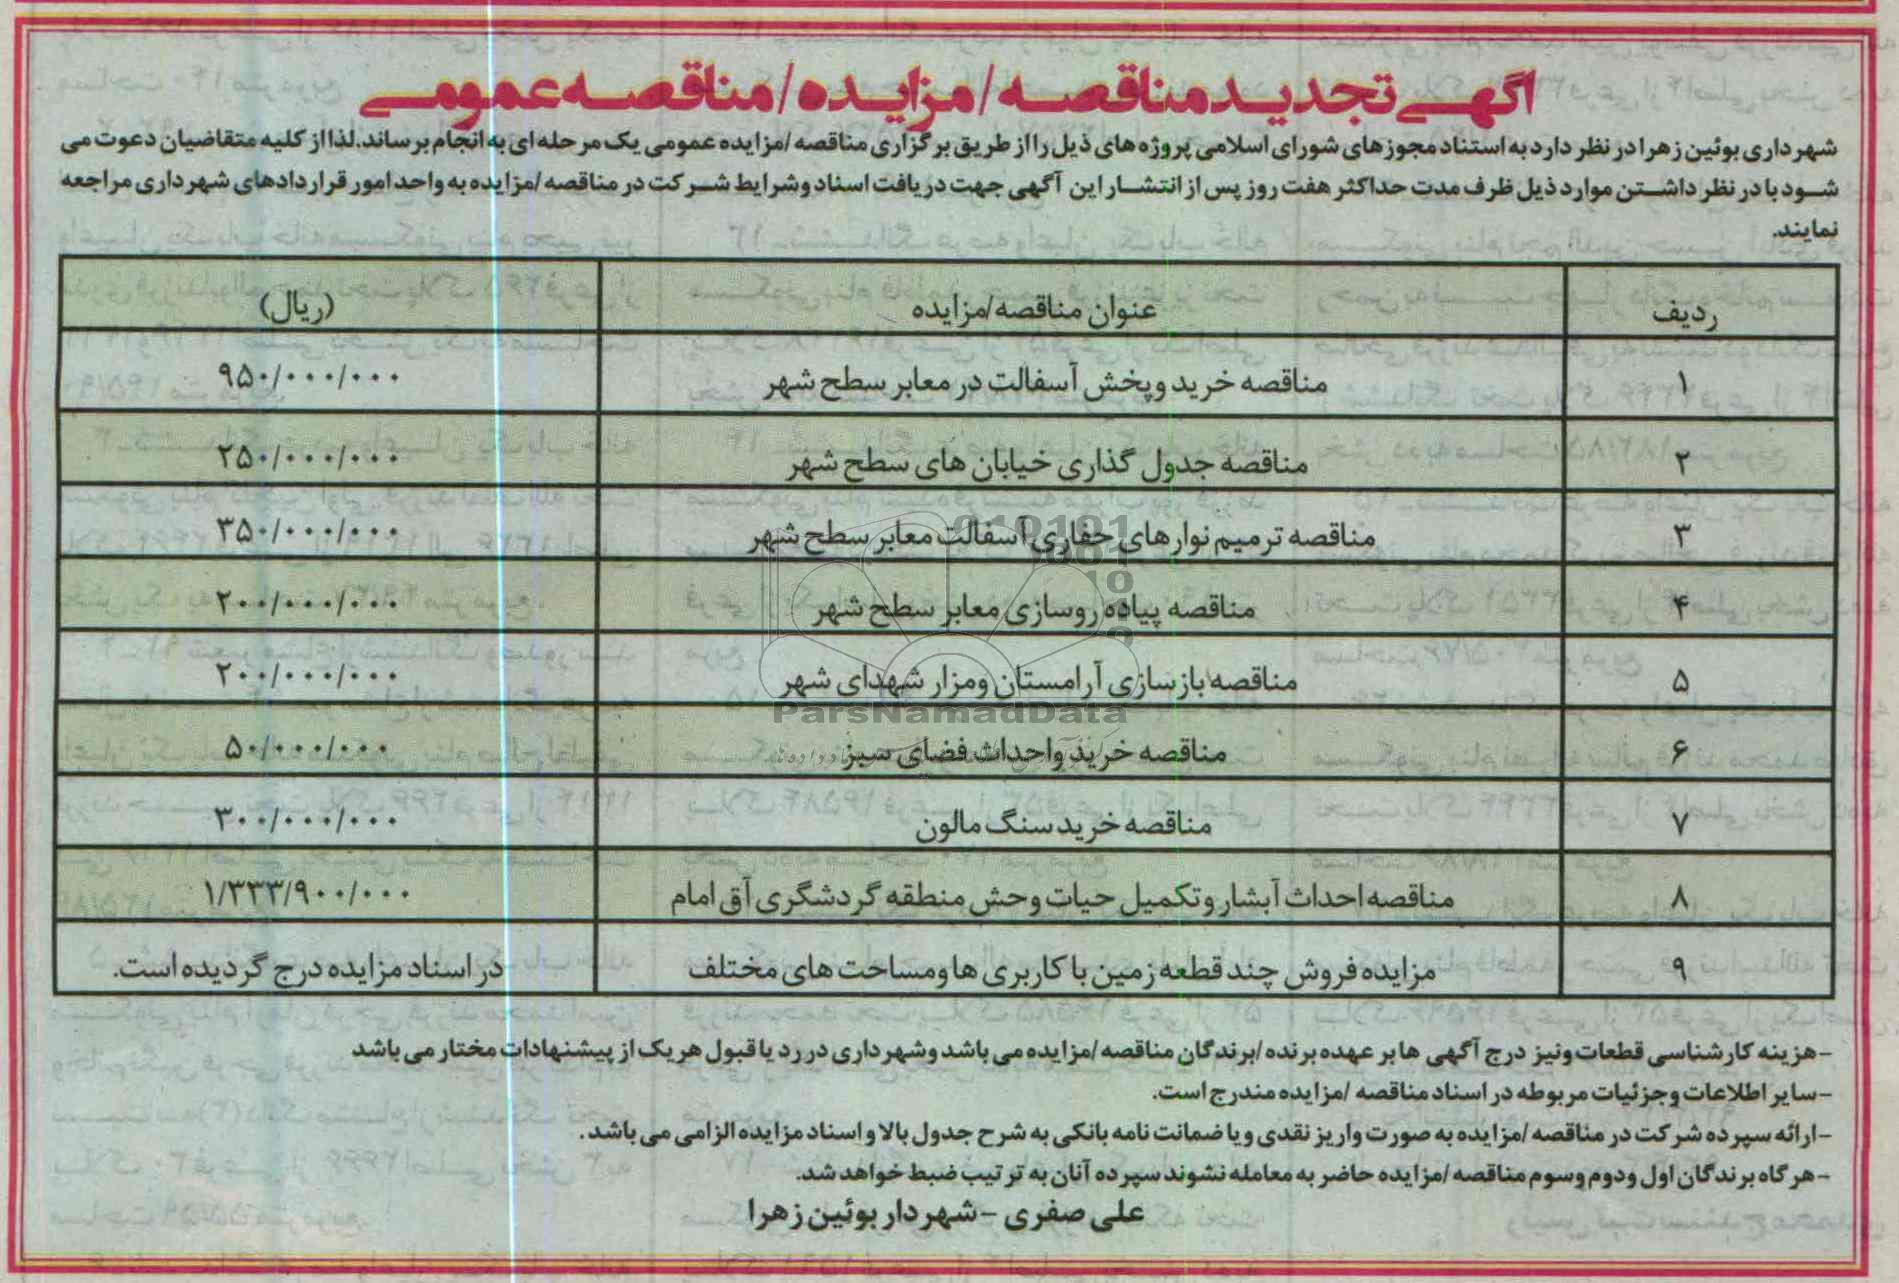 آگهی تجدید مناقصه/مزایده/مناقصه عمومی
شهرداری بوئین زهرا در نظر دارد به استناد مجوزهای شورای اسلامی پروژه های ذیل را از طریق برگزاری مناقصه /مزایده عمومی یک مرحله ای به انجام برساند. لذا از کلیه متقاضیان دعوت می
شود با در نظر داشتن موارد ذیل ظرف مدت حداکثر هفت روز پس از انتشار این آگهی جهت دریافت اسناد وشرایط شرکت در مناقصه /مزایده به واحد امور قراردادهای شهرداری مراجعه
نمایند.
ردیف عنوان مناقصه/مزایده (ریال)
۱ مناقصه خرید وپخش آسفالت در معابر سطح شهر ۹۵۰/۰۰۰/۰۰۰
۲ مناقصه جدول گذاری خیابان های سطح شهر ۲۵۰/۰۰۰/۰۰۰
۳ مناقصه ترمیم نوارهای حفاری آسفالت معابر سطح شهر ۳۵۰/۰۰۰/۰۰۰
۴ مناقصه پیاده روسازی معابر سطح شهر ۲۰۰/۰۰۰/۰۰۰
۵ مناقصه بازسازی آرامستان ومزار شهدای شهر ۲۰۰/۰۰۰/۰۰۰
ParsNamadData
۶ مناقصه خرید واحداث فضای سبز ۵۰/۰۰۰/۰۰۰
۷ مناقصه خرید سنگ مالون ۳۰۰/۰۰۰/۰۰۰
۸ مناقصه احداث آبشار وتکمیل حیات وحش منطقه گردشگری آق امام ۱/۳۳۳/۹۰۰/۰۰۰
۹ مزایده فروش چند قطعه زمین با کاربری ها ومساحت های مختلف در اسناد مزایده درج گردیده است.
-هزینه کارشناسی قطعات ونیز درج آگهی ها بر عهده برنده /برندگان مناقصه /مزایده می باشد وشهرداری در رد یا قبول هر یک از پیشنهادات مختار می باشد
-سایر اطلاعات وجزئیات مربوطه در اسناد مناقصه /مزایده مندرج است.
-ارائه سپرده شرکت در مناقصه /مزایده به صورت واریز نقدی ویا ضمانت نامه بانکی به شرح جدول بالا و اسناد مزایده الزامی می باشد.
-هر گاه برندگان اول ودوم وسوم مناقصه /مزایده حاضر به معامله نشوند سپرده آنان به ترتیب ضبط خواهد شد.
علی صفری -شهردار بوئین زهرا